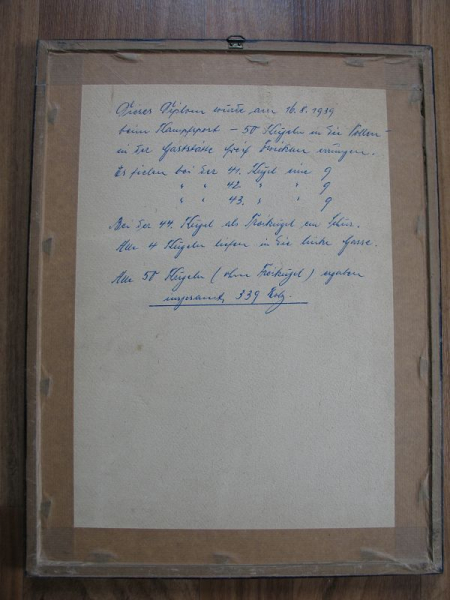 Dieses Diplom wurde am 16.8.1939
beim Kampfsport - 50 Kugeln in die Vollen -
in der Gaststätte Greif Zwickau errungen.
Es fielen bei der 41. Kugel eine 9
" " 42. " " 9
" " 43. " " 9
Bei der 44. Kugel als Freikugel ein
Alle 4 Kugeln liefen in die linke Gasse.
Alle 50 Kugeln (ohne Freikugel) ergaben
insgesamt 339 Holz.